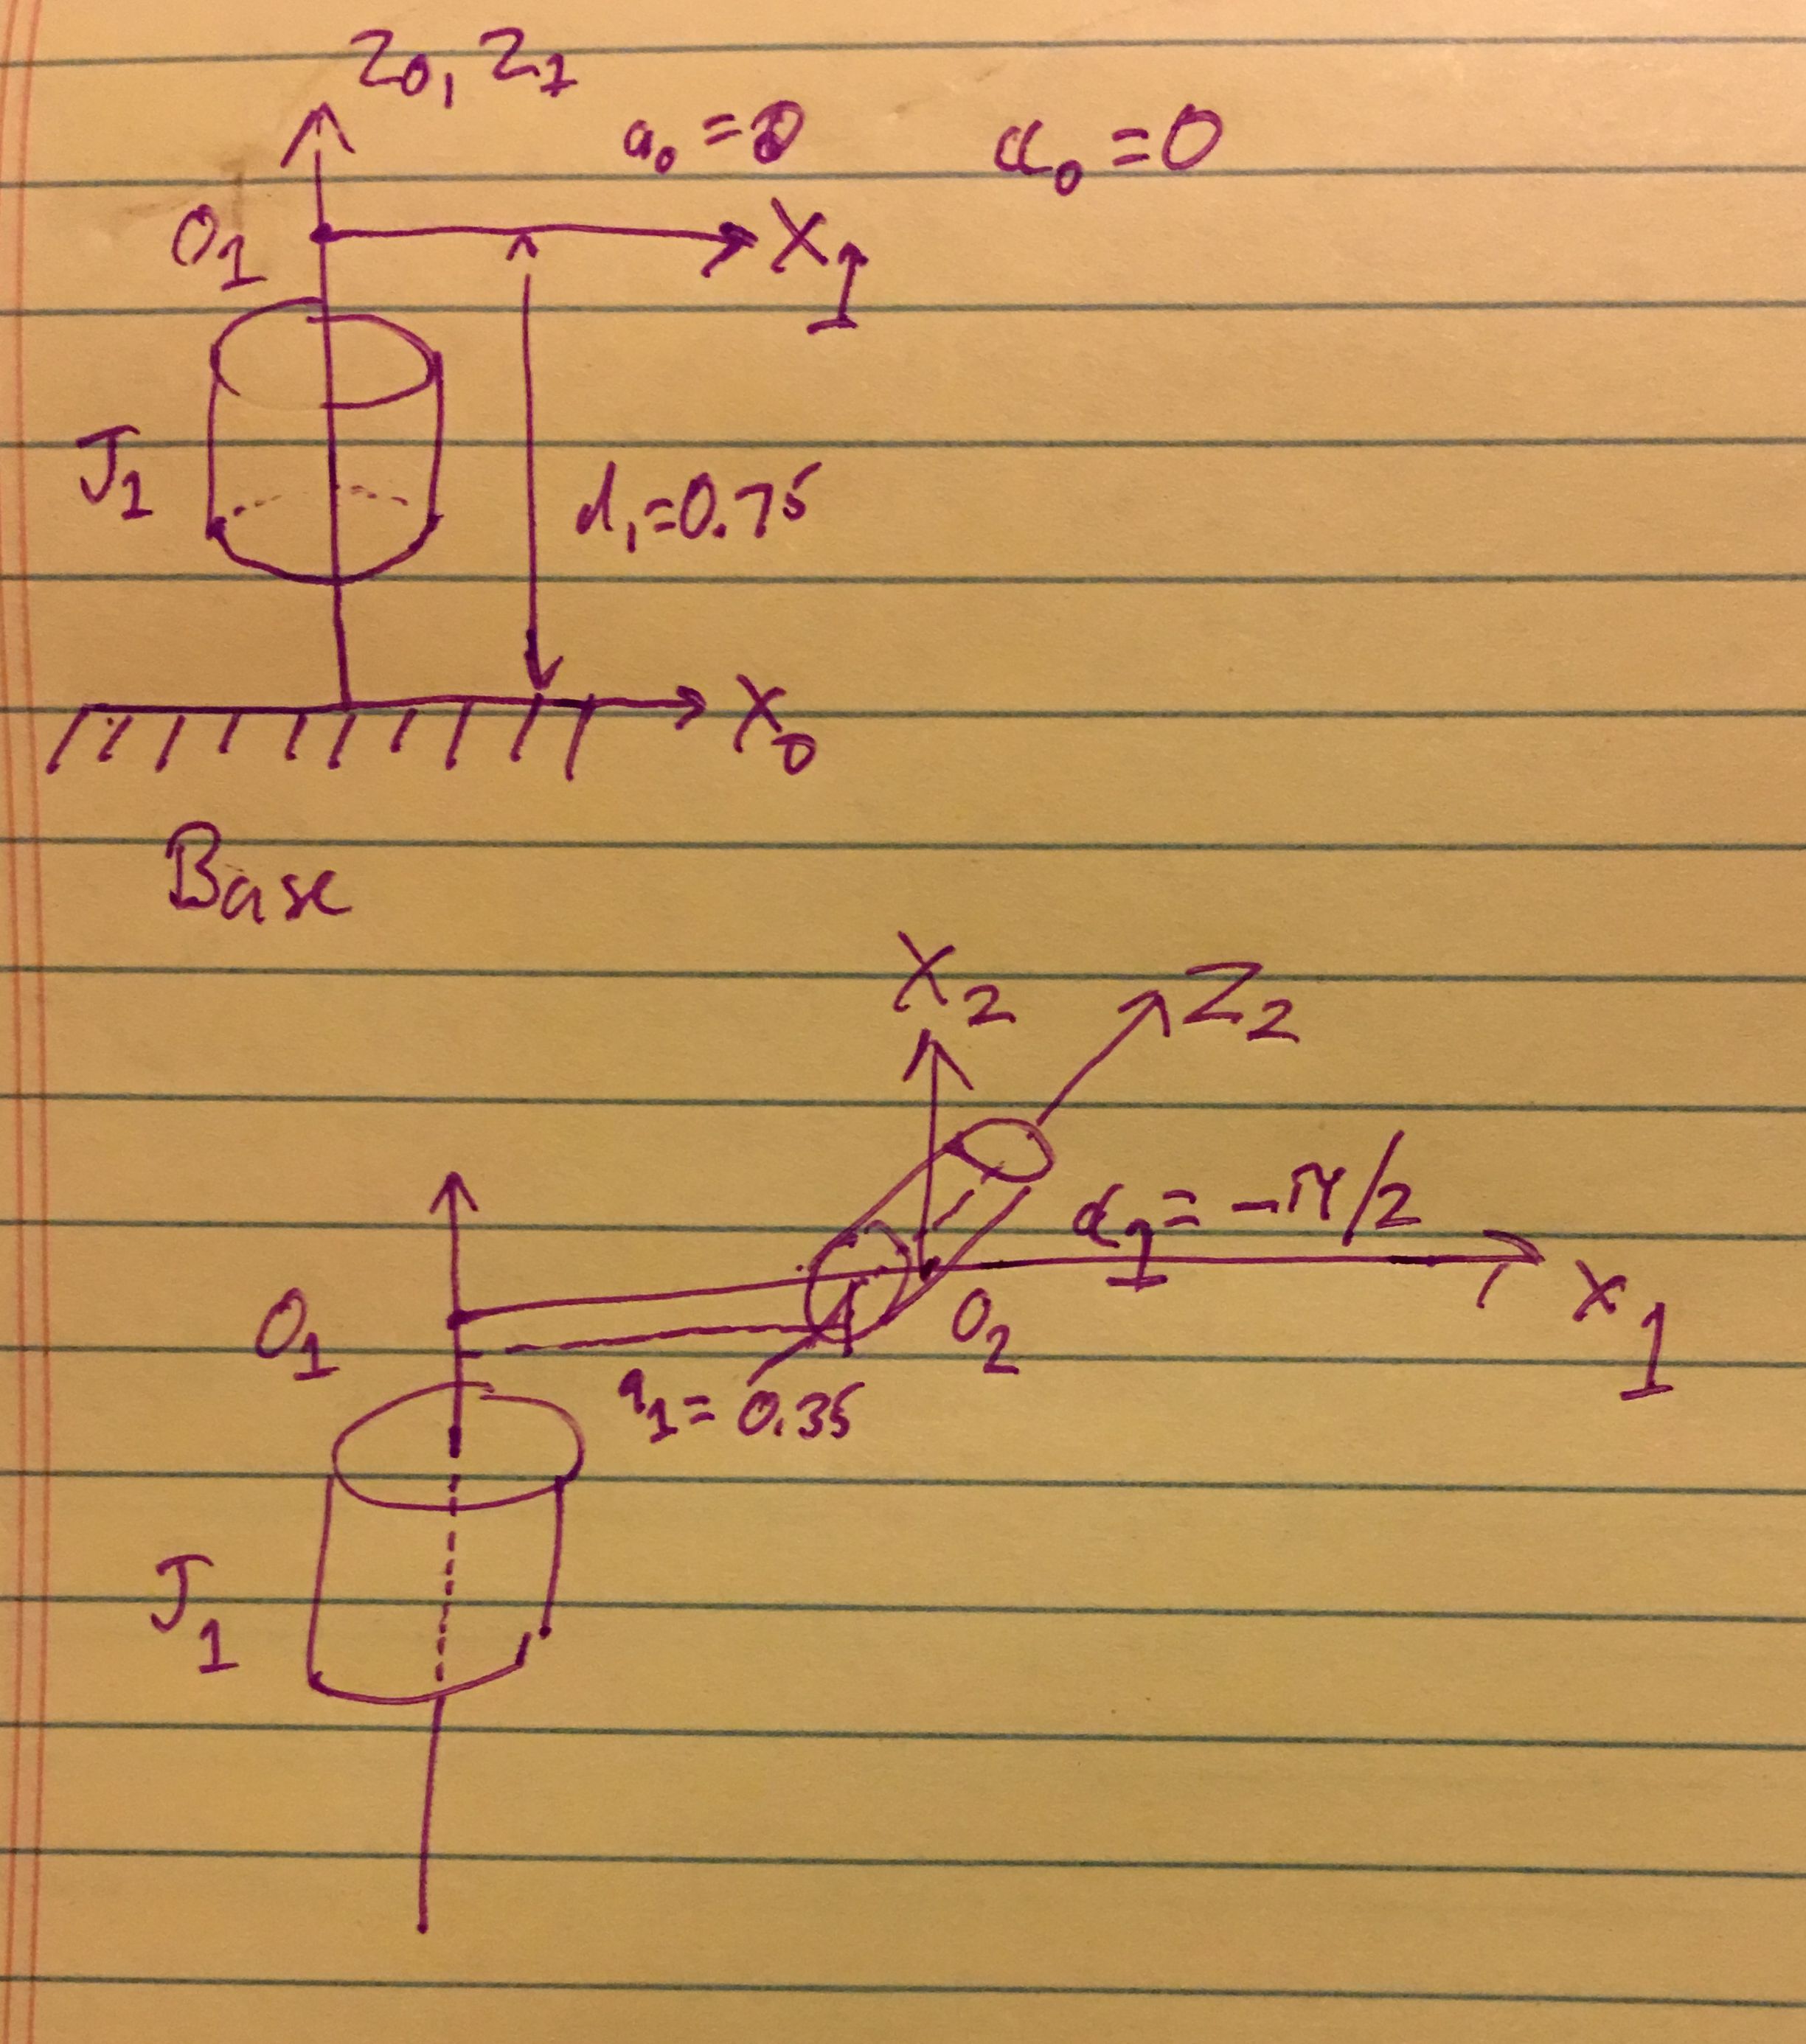 Z0, Z1
a0 = 0 α0 = 0
O1 X1
J1 d1=0.75
X0
Base
X2 Z2
α1 = -π/2
O1 O2 X1
a1 = 0.35
J1